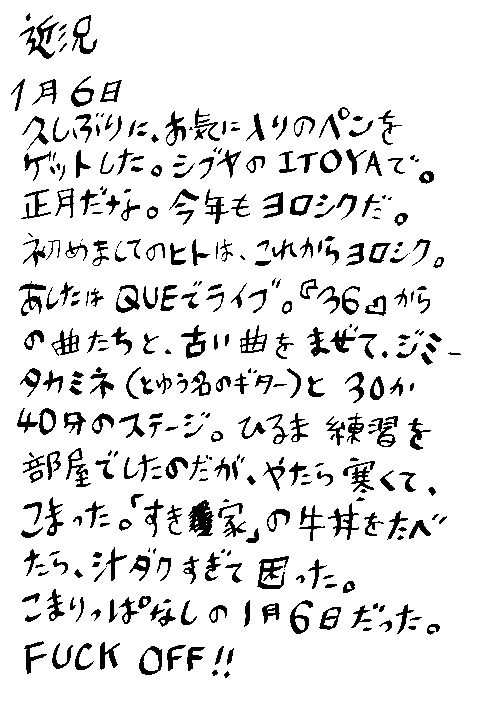 近況
1月6日
久しぶりに、お気に入りのペンを
ゲットした。シブヤのITOYAで。
正月だなな。今年もヨロシクだ。
初めましてのヒトは、これからヨロシク。
あしたはQUEでライブ。『36』から
の曲たちと、古い曲をまぜて、ジミー
タカミネ(とゆう名のギター)と30か
40分のステージ。ひるま練習を
部屋でしたのだが、やたら寒くて、
こまった。「すき家」の牛丼をたべ
たら、汁ダクすぎて困った。
こまりっぱなしの1月6日だった。
FUCK OFF!!